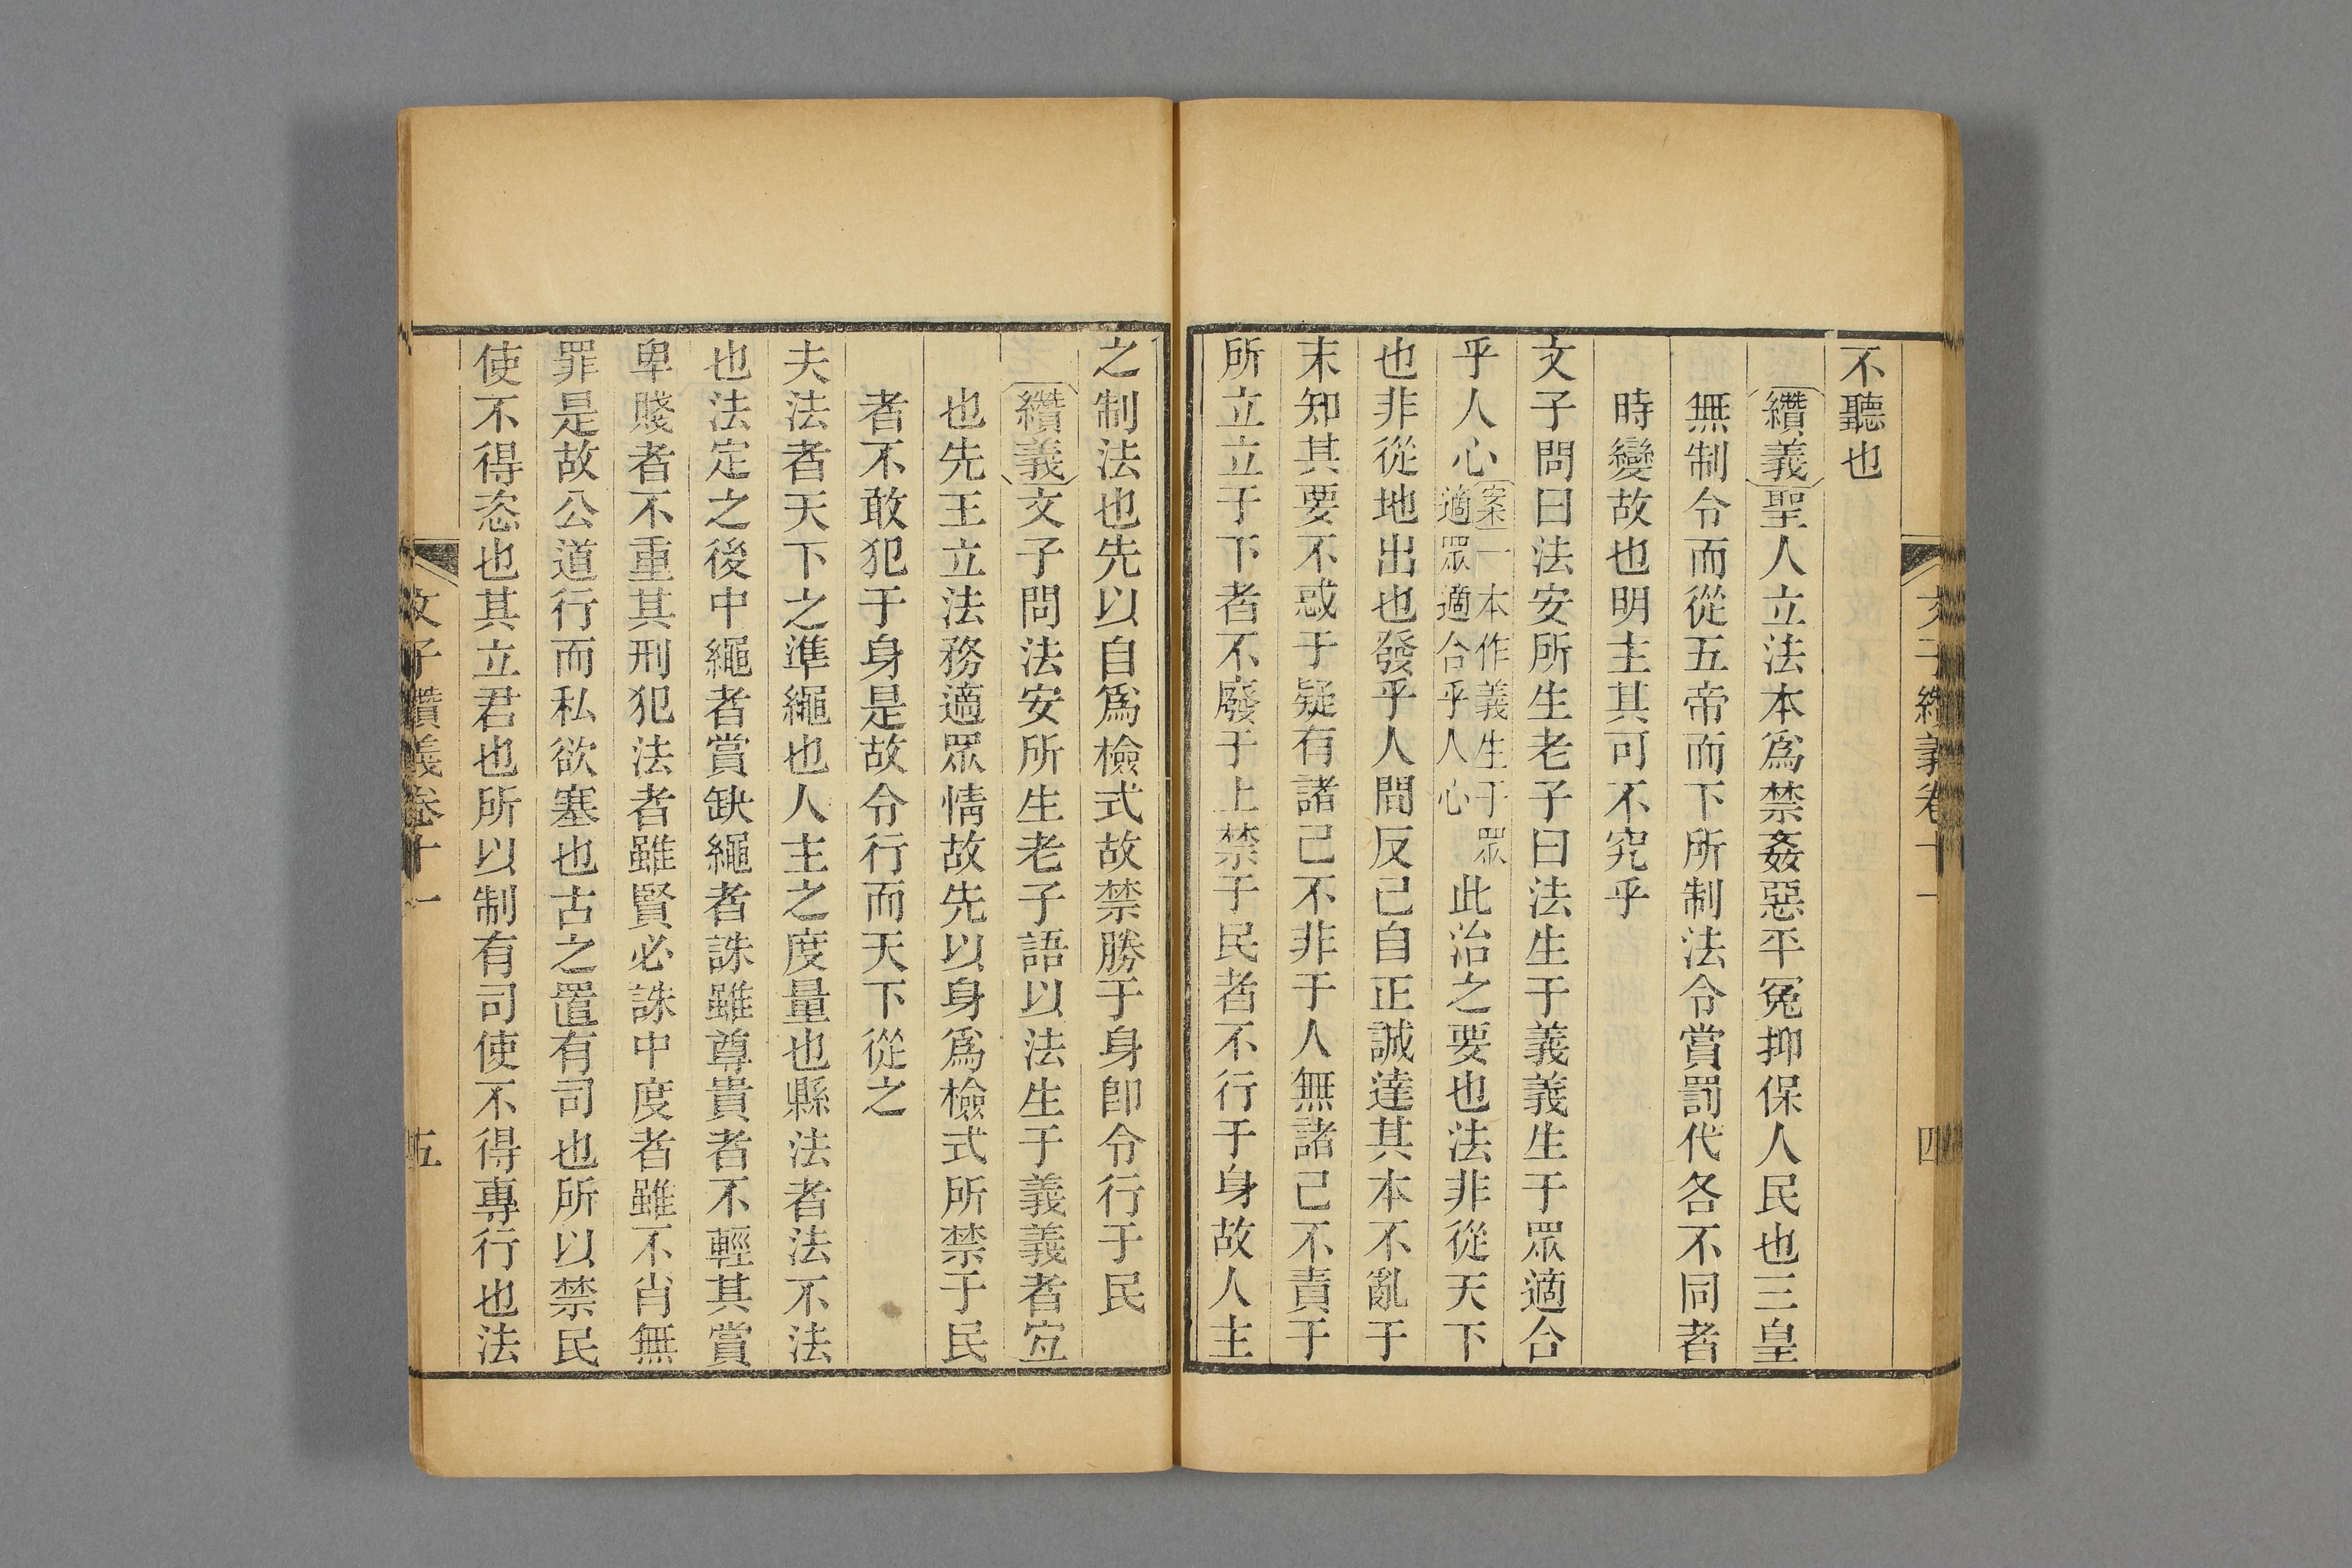 文子纘義卷十一
四
不聽也
纘義聖人立法本爲禁姦惡平冤抑保人民也三皇
無制令而從五帝而下所制法令賞罰代各不同者
時變故也明主其可不究乎
文子問曰法安所生老子曰法生于義義生于眾適合
乎人心案一本作義生于眾適眾適合乎人心此治之要也法非從天下
也非從地出也發乎人間反己自正誠達其本不亂于
末知其要不惑于疑有諸己不非于人無諸己不責于
所立立于下者不廢于上禁于民者不行于身故人主
之制法也先以自爲檢式故禁勝于身卽令行于民
纘義文子問法安所生老子語以法生于義義者宐
也先王立法務適眾情故先以身爲檢式所禁于民
者不敢犯于身是故令行而天下從之
夫法者天下之準繩也人主之度量也縣法者法不法
也法定之後中繩者賞缺繩者誅雖尊貴者不輕其賞
卑賤者不重其刑犯法者雖賢必誅中度者雖不肖無
罪是故公道行而私欲塞也古之置有司也所以禁民
使不得恣也其立君也所以制有司使不得專行也法
文子纘義卷十一
五